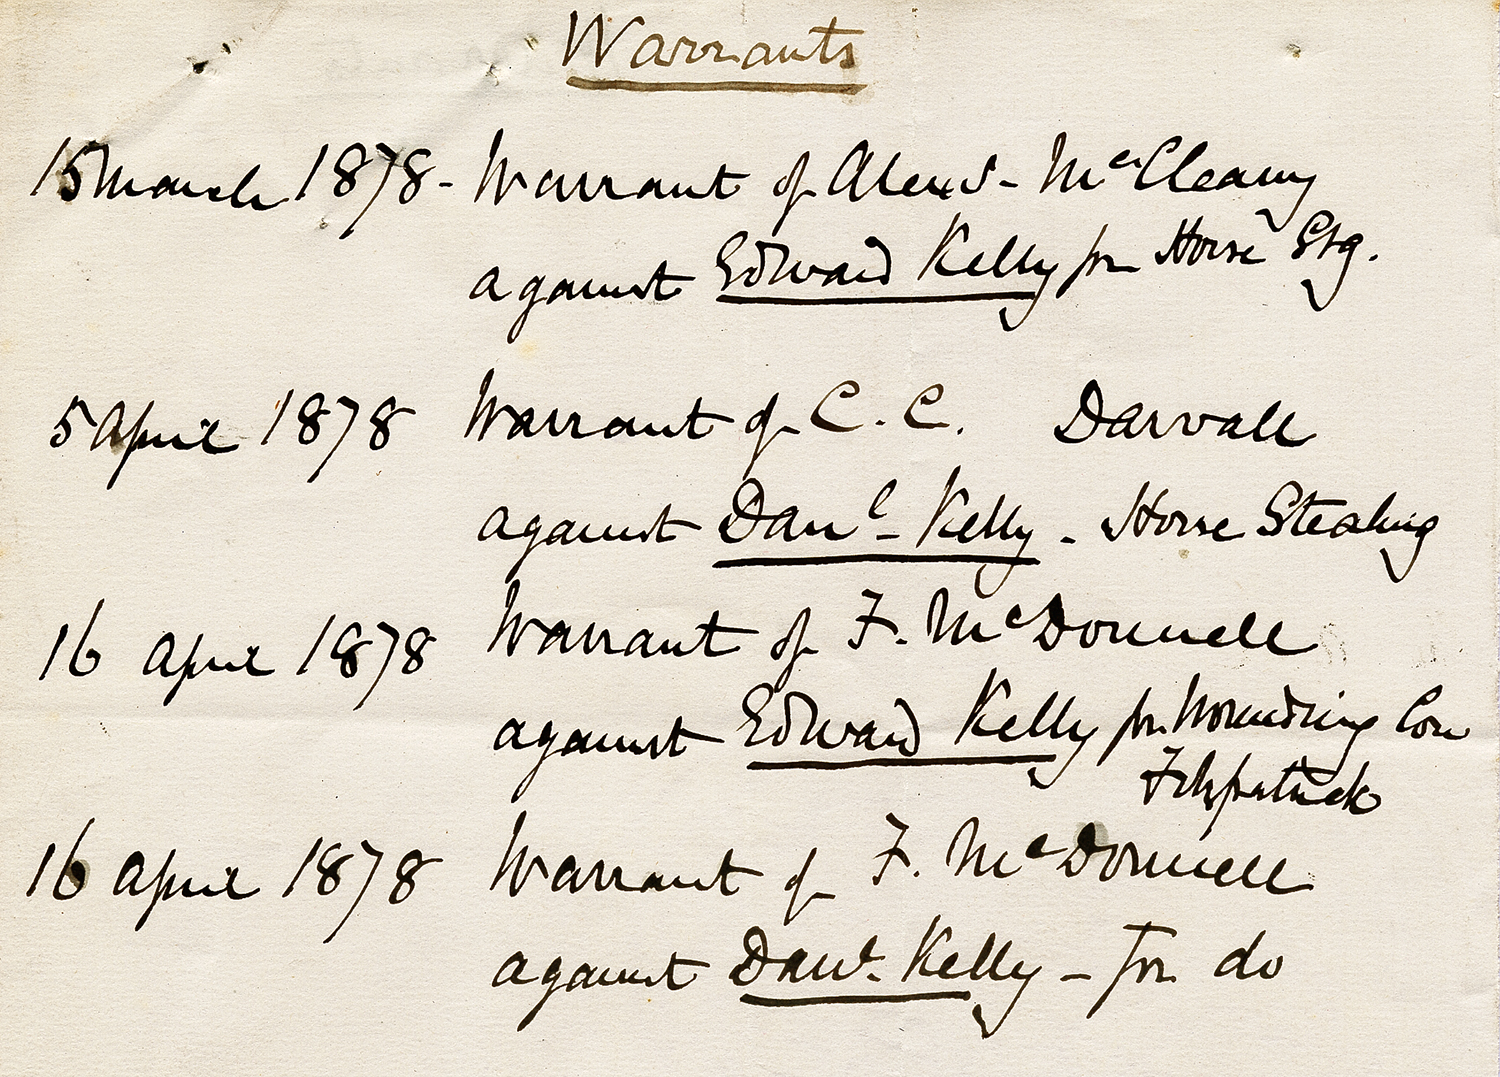 Warrants
15 March 1878 - Warrant of Alexr - McCleary
against Edward Kelly for Horse Stg.
5 April 1878 Warrant of C. C. Darvall
against Danl - Kelly - Horse Stealing
16 April 1878 Warrant of F. McDonnell
against Edward Kelly for Wounding Con
Fitzpatrick
16 April 1878 Warrant of F. McDonnell
against Danl - Kelly - for do